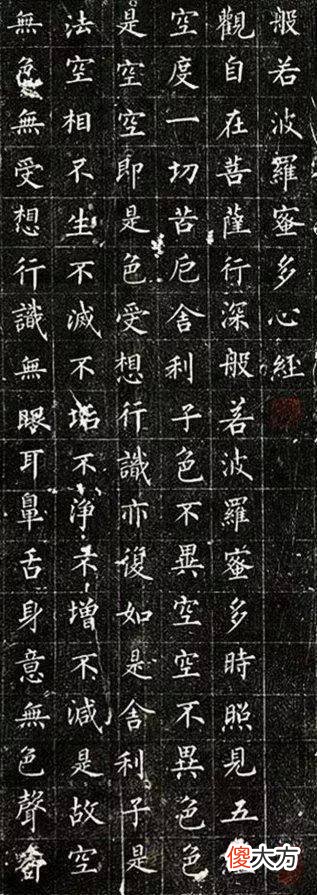 般若波羅蜜多心経
觀自在菩薩行深般若波羅蜜多時照見五
空度一切苦厄舍利子色不異空空不異色色
是空空即是色受想行識亦復如是舍利子是
法空相不生不滅不垢不淨不增不減是故空
無色無受想行識無眼耳鼻舌身意無色聲香
傻大方